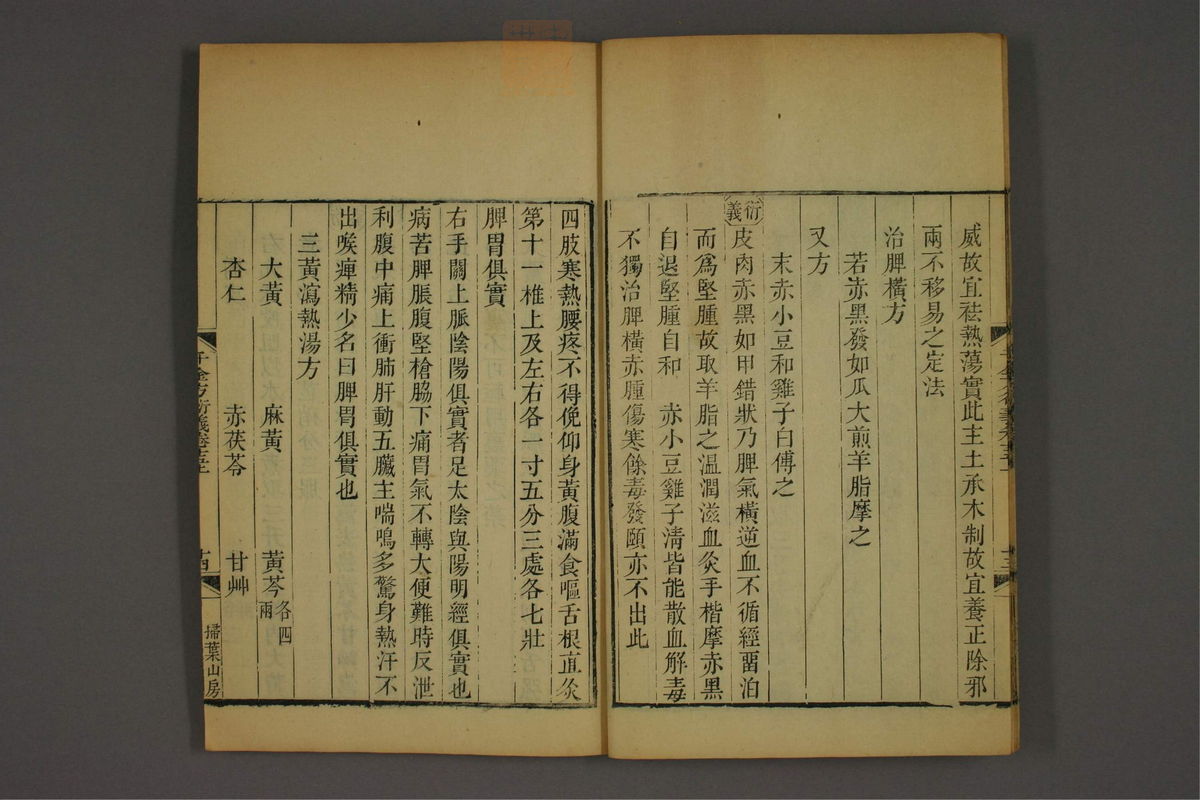 威故宜祛熱蕩實此主土承木制故宜養正除邪
兩不移易之定法
治脾橫方
若赤黑發如瓜大煎羊脂摩之
又方
末赤小豆和雞子白傅之
衍義
皮肉赤黑如甲錯狀乃脾氣橫逆血不循經畱泊
而爲堅腫故取羊脂之温潤滋血灸手楷摩赤黑
自退堅腫自和 赤小豆雞子清皆能散血解毒
不獨治脾橫赤腫傷寒餘毒發頤亦不出此
四肢寒熱腰疼不得俛仰身黃腹滿食嘔舌根直灸
第十一椎上及左右各一寸五分三處各七壯
脾胃俱實
右手關上脈陰陽俱實者足太陰與陽明經俱實也
病苦脾脹腹堅槍脇下痛胃氣不轉大便難時反泄
利腹中痛上衝肺肝動五臟主喘鳴多驚身熱汗不
出喉痺精少名曰脾胃俱實也
三黃瀉熱湯方
大黃 麻黃 黃芩各四兩
杏仁 赤茯苓 甘艸
千金方衍義卷十五
十四
掃葉山房